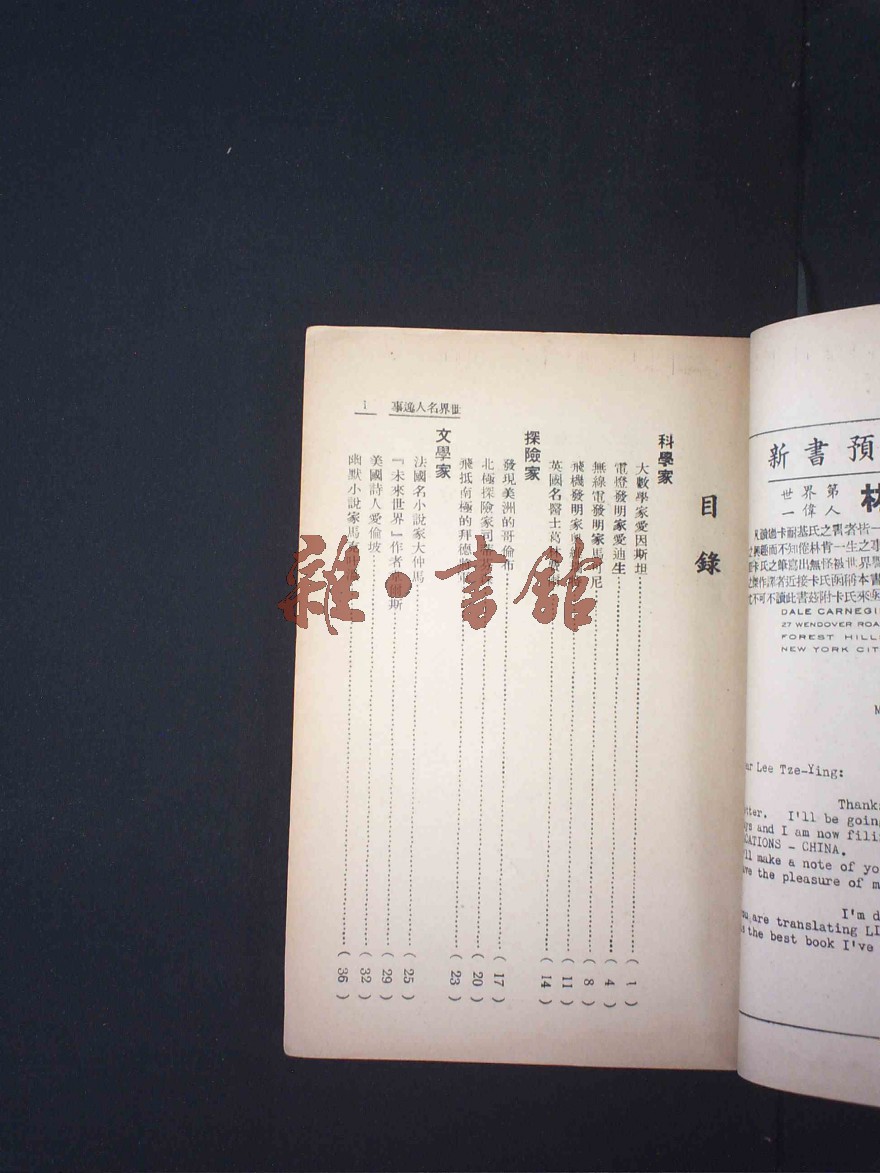 新書預
世界第
一偉人
林
DALE CARNEGI
27 WENDOVER ROA
FOREST HILL
NEW YORK CIT
ar Lee Tze-Ying:
Thank
tter. I'll be going
ys and I am now fili
CATIONS - CHINA.
ll make a note of yo
ve the pleasure of m
I'm d
ou are translating LI
s the best book I've
世界名人逸事 1
目錄
科學家
大數學家愛因斯坦(1)
電燈發明家愛迪生(4)
無線電發明家馬 尼(8)
飛機發明家 (11)
英國名醫士葛林 (14)
探險家
發現美洲的哥倫布(17)
北極探險家司 (20)
飛抵南極的拜德 (23)
文學家
法國名小說家大仲馬(25)
『未來世界』作者 斯(29)
美國詩人愛倫坡(32)
幽默小說家馬克 (36)
雜·書館